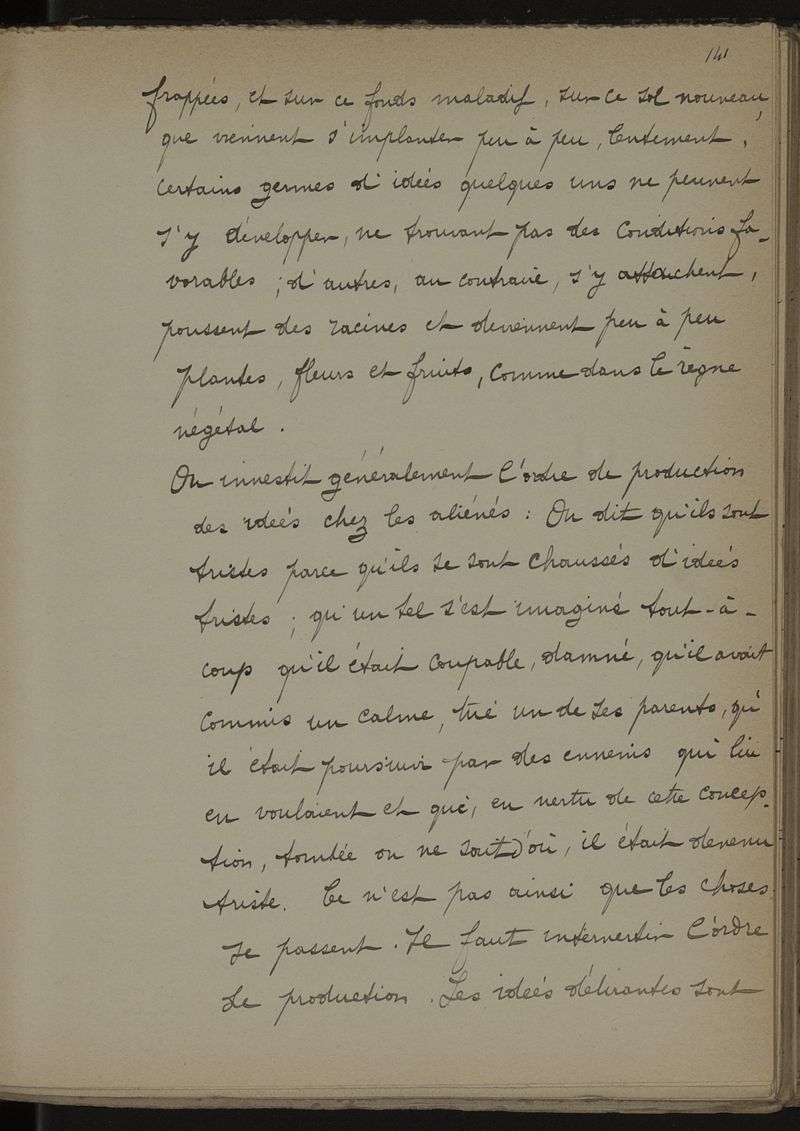 141
frappées, et sur ce fonds maladif, sur ce sol nouveau,
que viennent s'implanter peu à peu, lentement,
certains germes d'idées quelques uns ne peuvent
s'y développer, ne trouvant pas des conditions fa-
vorables ; d'autres, au contraire, s'y attachent,
poussent des racines et deviennent peu à peu
plantes, fleurs et fruits, comme dans le règne
végétal.
On investit généralement l'ordre de production
des idées chez les aliénés : On dit qu'ils sont
tristes parce qu'ils se sont chaussés d'idées
tristes ; qu'un tel s'est imaginé tout-à-
coup qu'il était coupable, damné, qu'il avait
commis un calme, tué un de ses parents, qu'
il était poursuivi par des ennemis qui lui
en voulaient et que, en vertu de cette concep-
tion, tombée on ne sait d'où, il était devenu
triste. Ce n'est pas ainsi que les choses
se passent. Il faut intervertir l'ordre
de production. Les idées délirantes sont